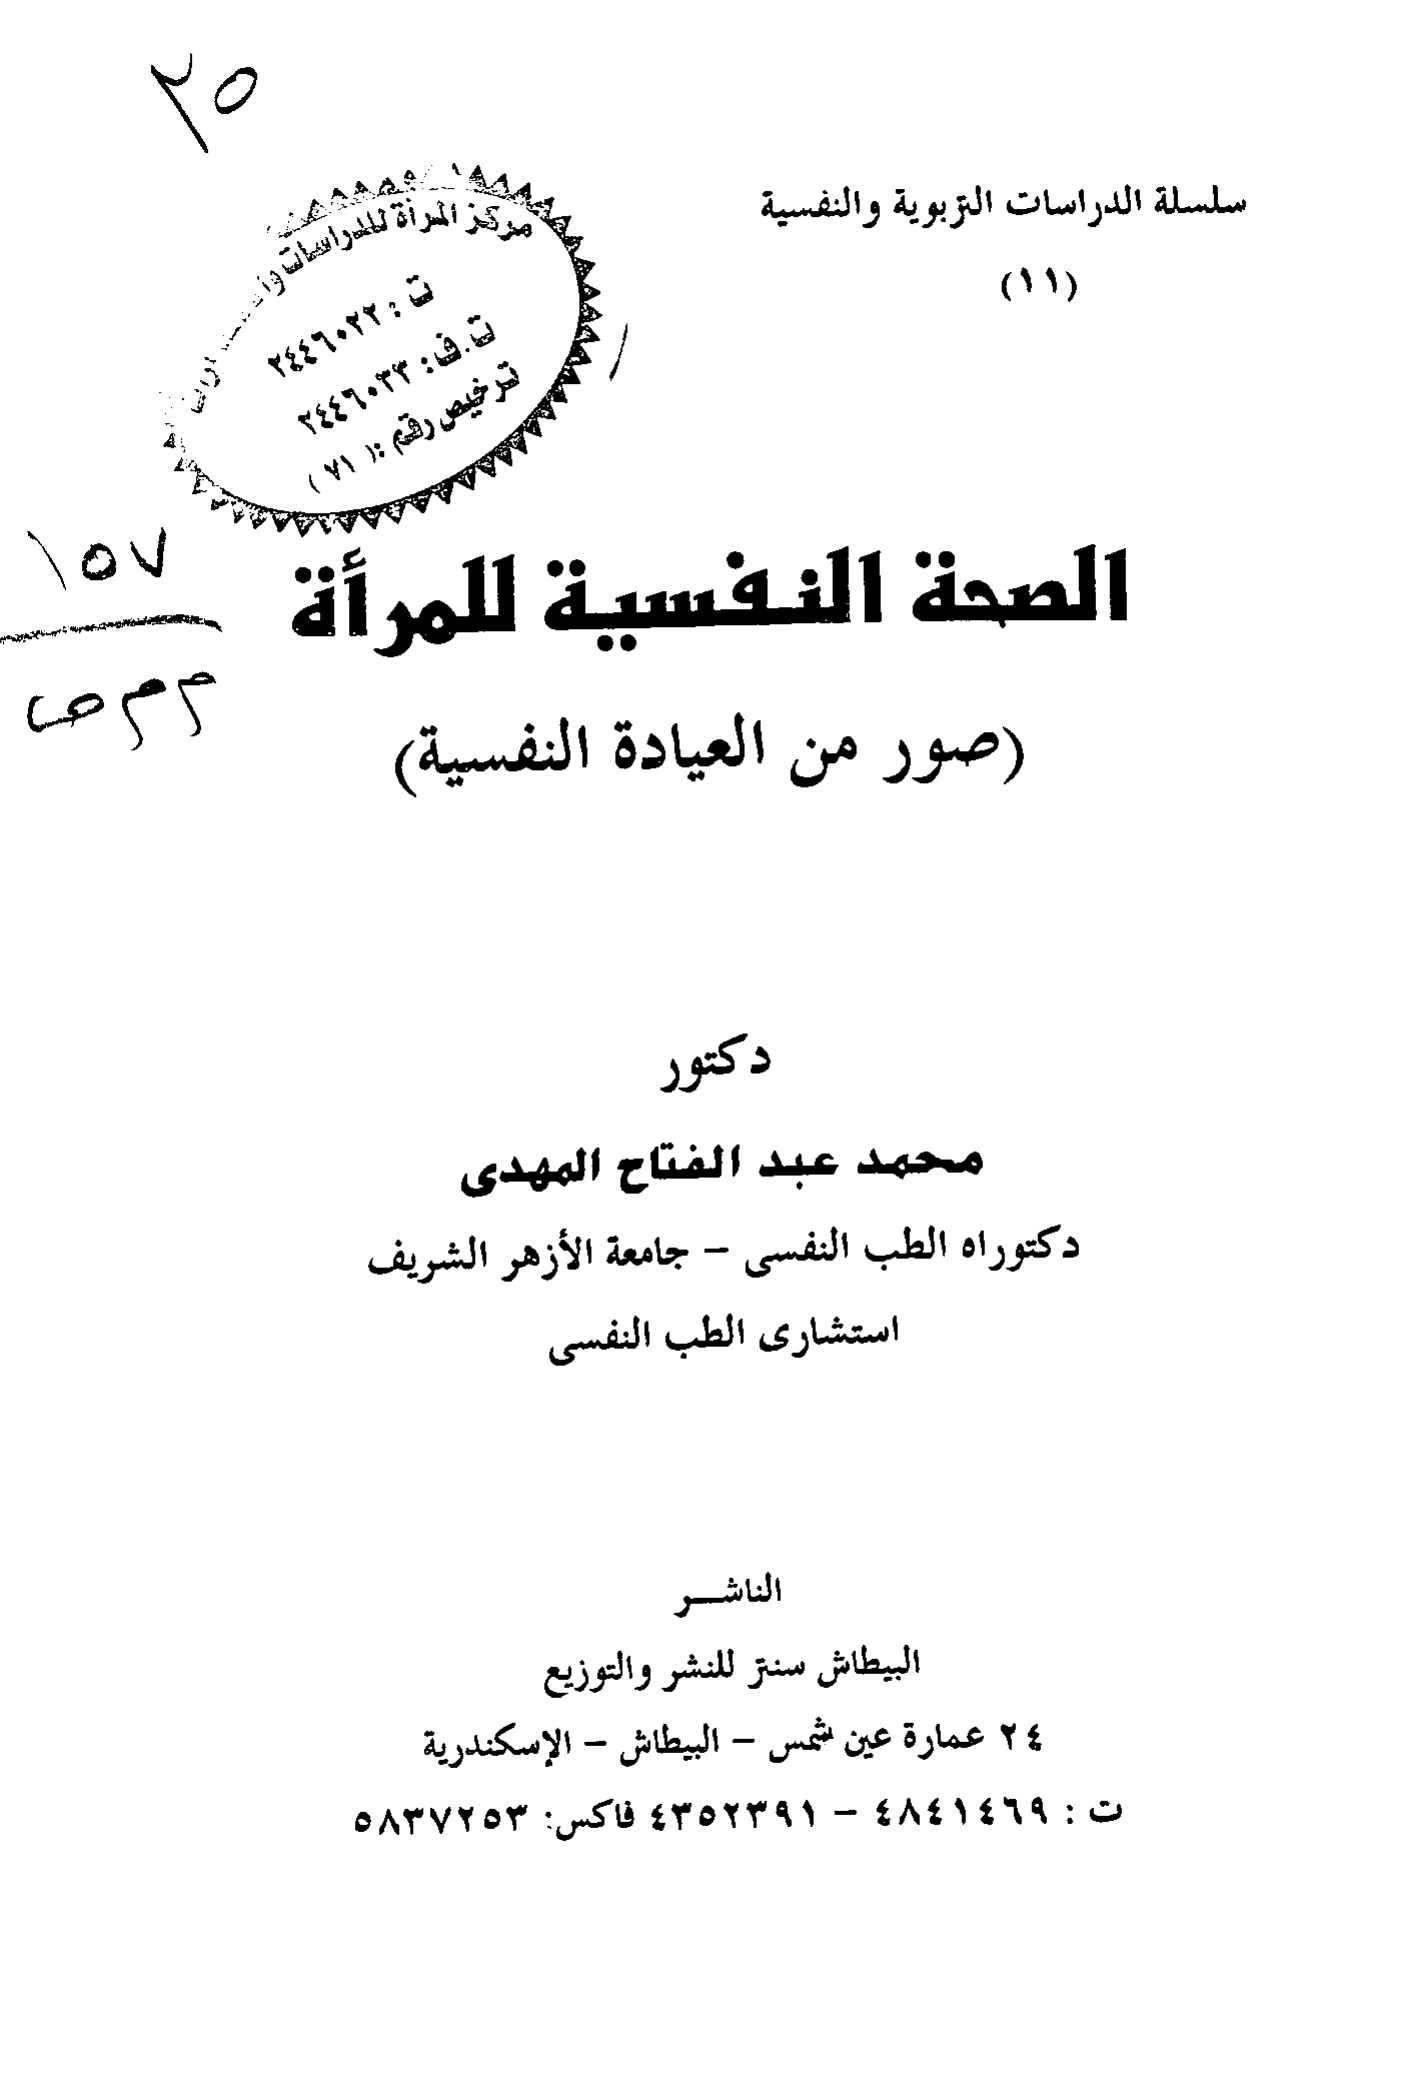 ٢٥
سلسلة الدراسات التربوية والنفسية
(١١)
مركز المرأة للدراسات
ت : ٢٤٤٦٠٢٢
ت.ف: ٢٤٤٦٠٣٣
ترخيص رقم :( ٧١ )
١٥٧
م م ص
الصحة النفسية للمرأة
(صور من العيادة النفسية)
دكتور
محمد عبد الفتاح المهدى
دكتوراه الطب النفسى – جامعة الأزهر الشريف
استشارى الطب النفسى
الناشـــر
البيطاش سنتر للنشر والتوزيع
٢٤ عمارة عين شمس – البيطاش – الإسكندرية
ت : ٤٨٤١٤٦٩ – ٤٣٥٢٣٩١ فاكس: ٥٨٣٧٢٥٣